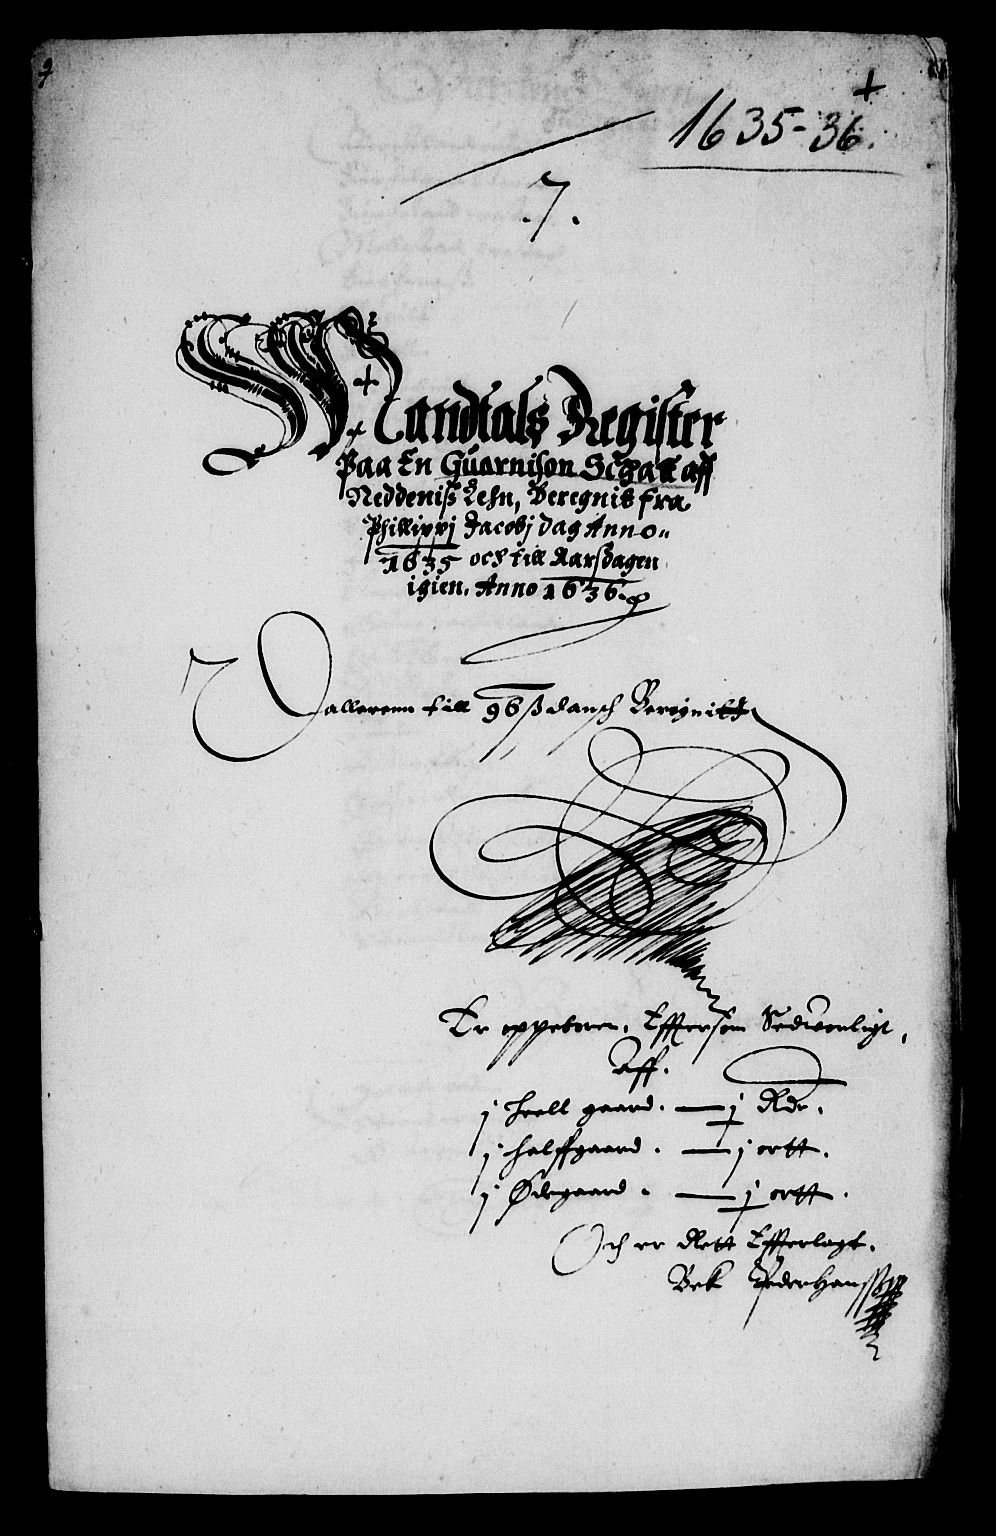 1635-36.
.7.
Mandtals Register
Paa En Guarnison Schatt aff
Neddenis Lehn, Beregnit fra
Phillippj Jacobj dag Anno
1635 och till Aarsdagen
igien. Anno 1636.
Dallerenn till 96 ß dansch Beregnitt
Er oppeboren, Efftersom Sedvonligt,
Aff.
j heell gaard. — j Rdr.
j halffgaard. — j ortt.
j Ødegaard. — j ortt.
Och er Rett Efferlagt.
Bek Peder Hanssn